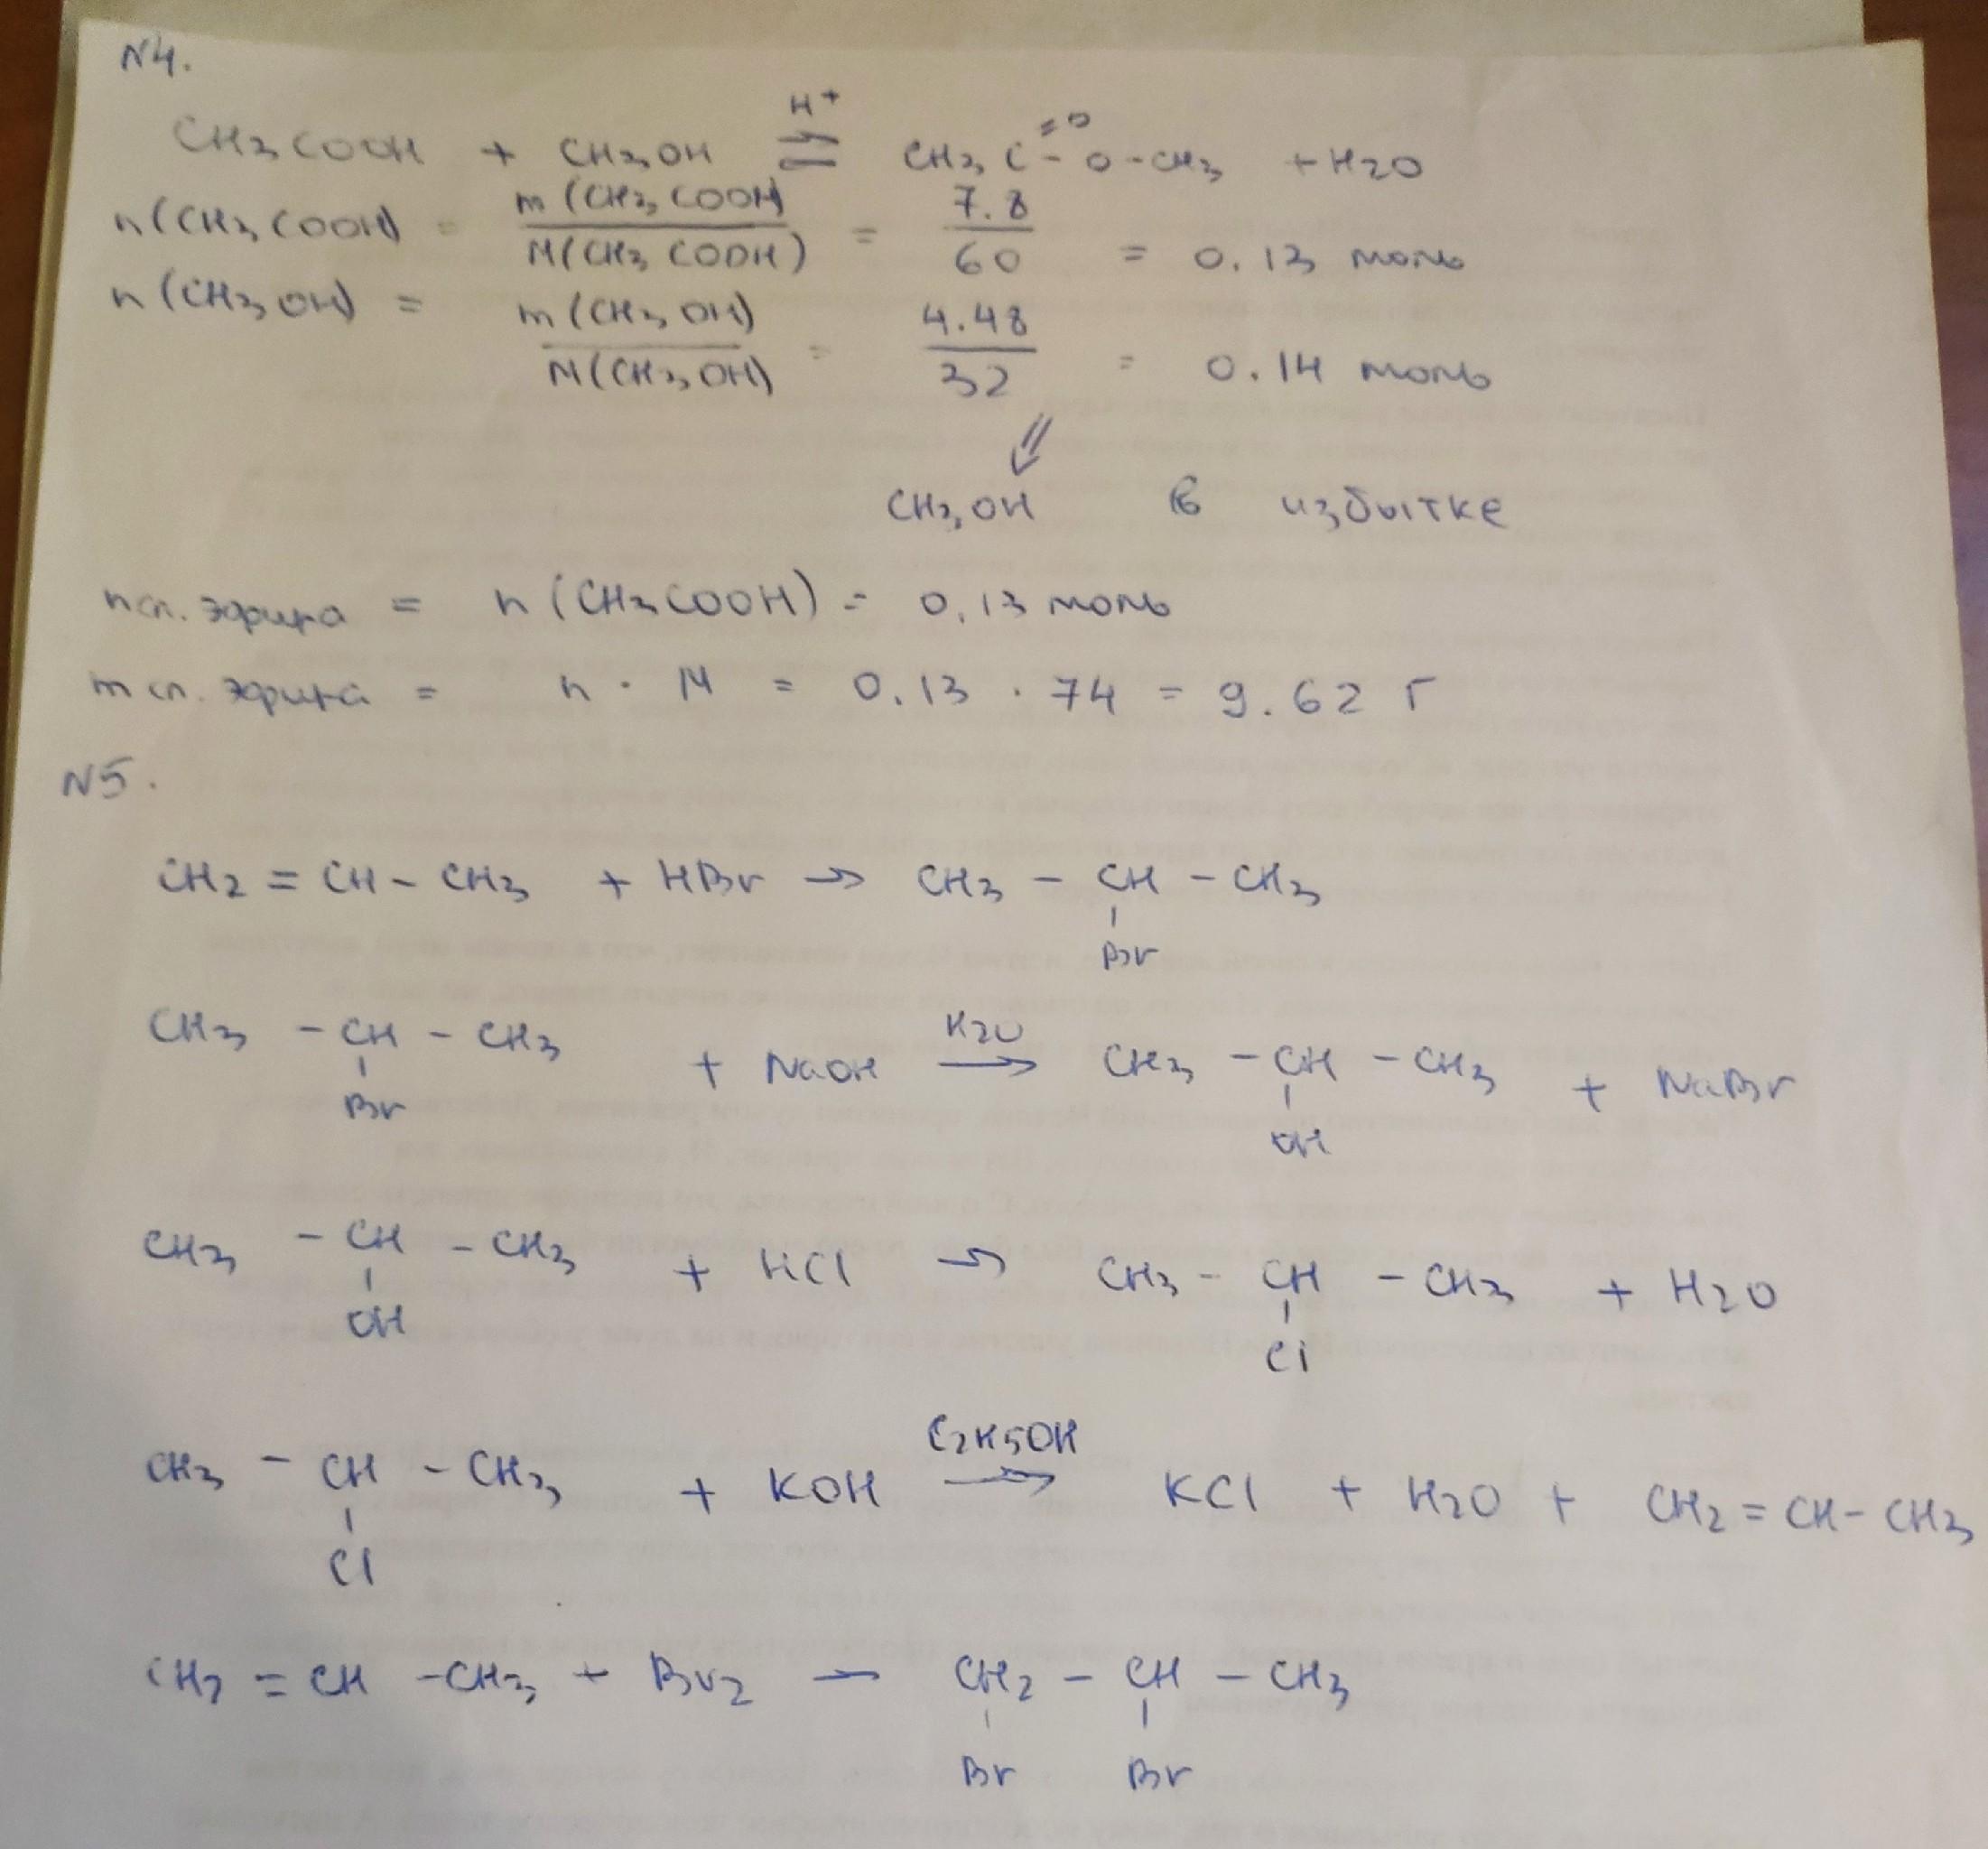 N4.
H+
CH3COOH + CH3OH ⇌ CH3C=O-O-CH3 + H2O
n(CH3COOH) = m(CH3COOH) / M(CH3COOH) = 7.8 / 60 = 0.13 моль
n(CH3OH) = m(CH3OH) / M(CH3OH) = 4.48 / 32 = 0.14 моль
⇓
CH3OH в избытке
nсл. эфира = n(CH3COOH) = 0,13 моль
mсл. эфира = n · M = 0.13 · 74 = 9.62 г
N5.
CH2 = CH - CH3 + HBr → CH3 - CH - CH3
Br
H2O
CH3 - CH - CH3 + NaOH → CH3 - CH - CH3 + NaBr
Br OH
CH3 - CH - CH3 + HCl → CH3 - CH - CH3 + H2O
OH Cl
C2H5OH
CH3 - CH - CH3 + KOH → KCl + H2O + CH2 = CH - CH3
Cl
CH2 = CH - CH3 + Br2 → CH2 - CH - CH3
Br Br